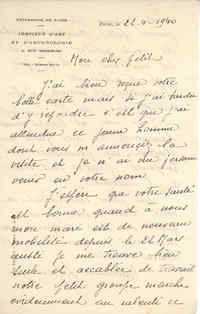 UNIVERSITÉ DE PARIS
INSTITUT D'ART
ET D'ARCHÉOLOGIE
Paris, le 22.4.1940
Mon cher Petit
J'ai bien reçue votre
carte mais si j'ai tardé
d'y répondre c'est que j'ai
attendue ce jeune homme
dont vous m'annonciez la
visite et je n'ai vu personne
venir en votre nom
J'espère que votre santé
est bonne quand à nous
mon mari est de nouveau
mobilisé depuis le 22 Mars
aussi je me trouve bien
seule et accablée de travail
notre petit groupe marche
évidemment au ralenti ce